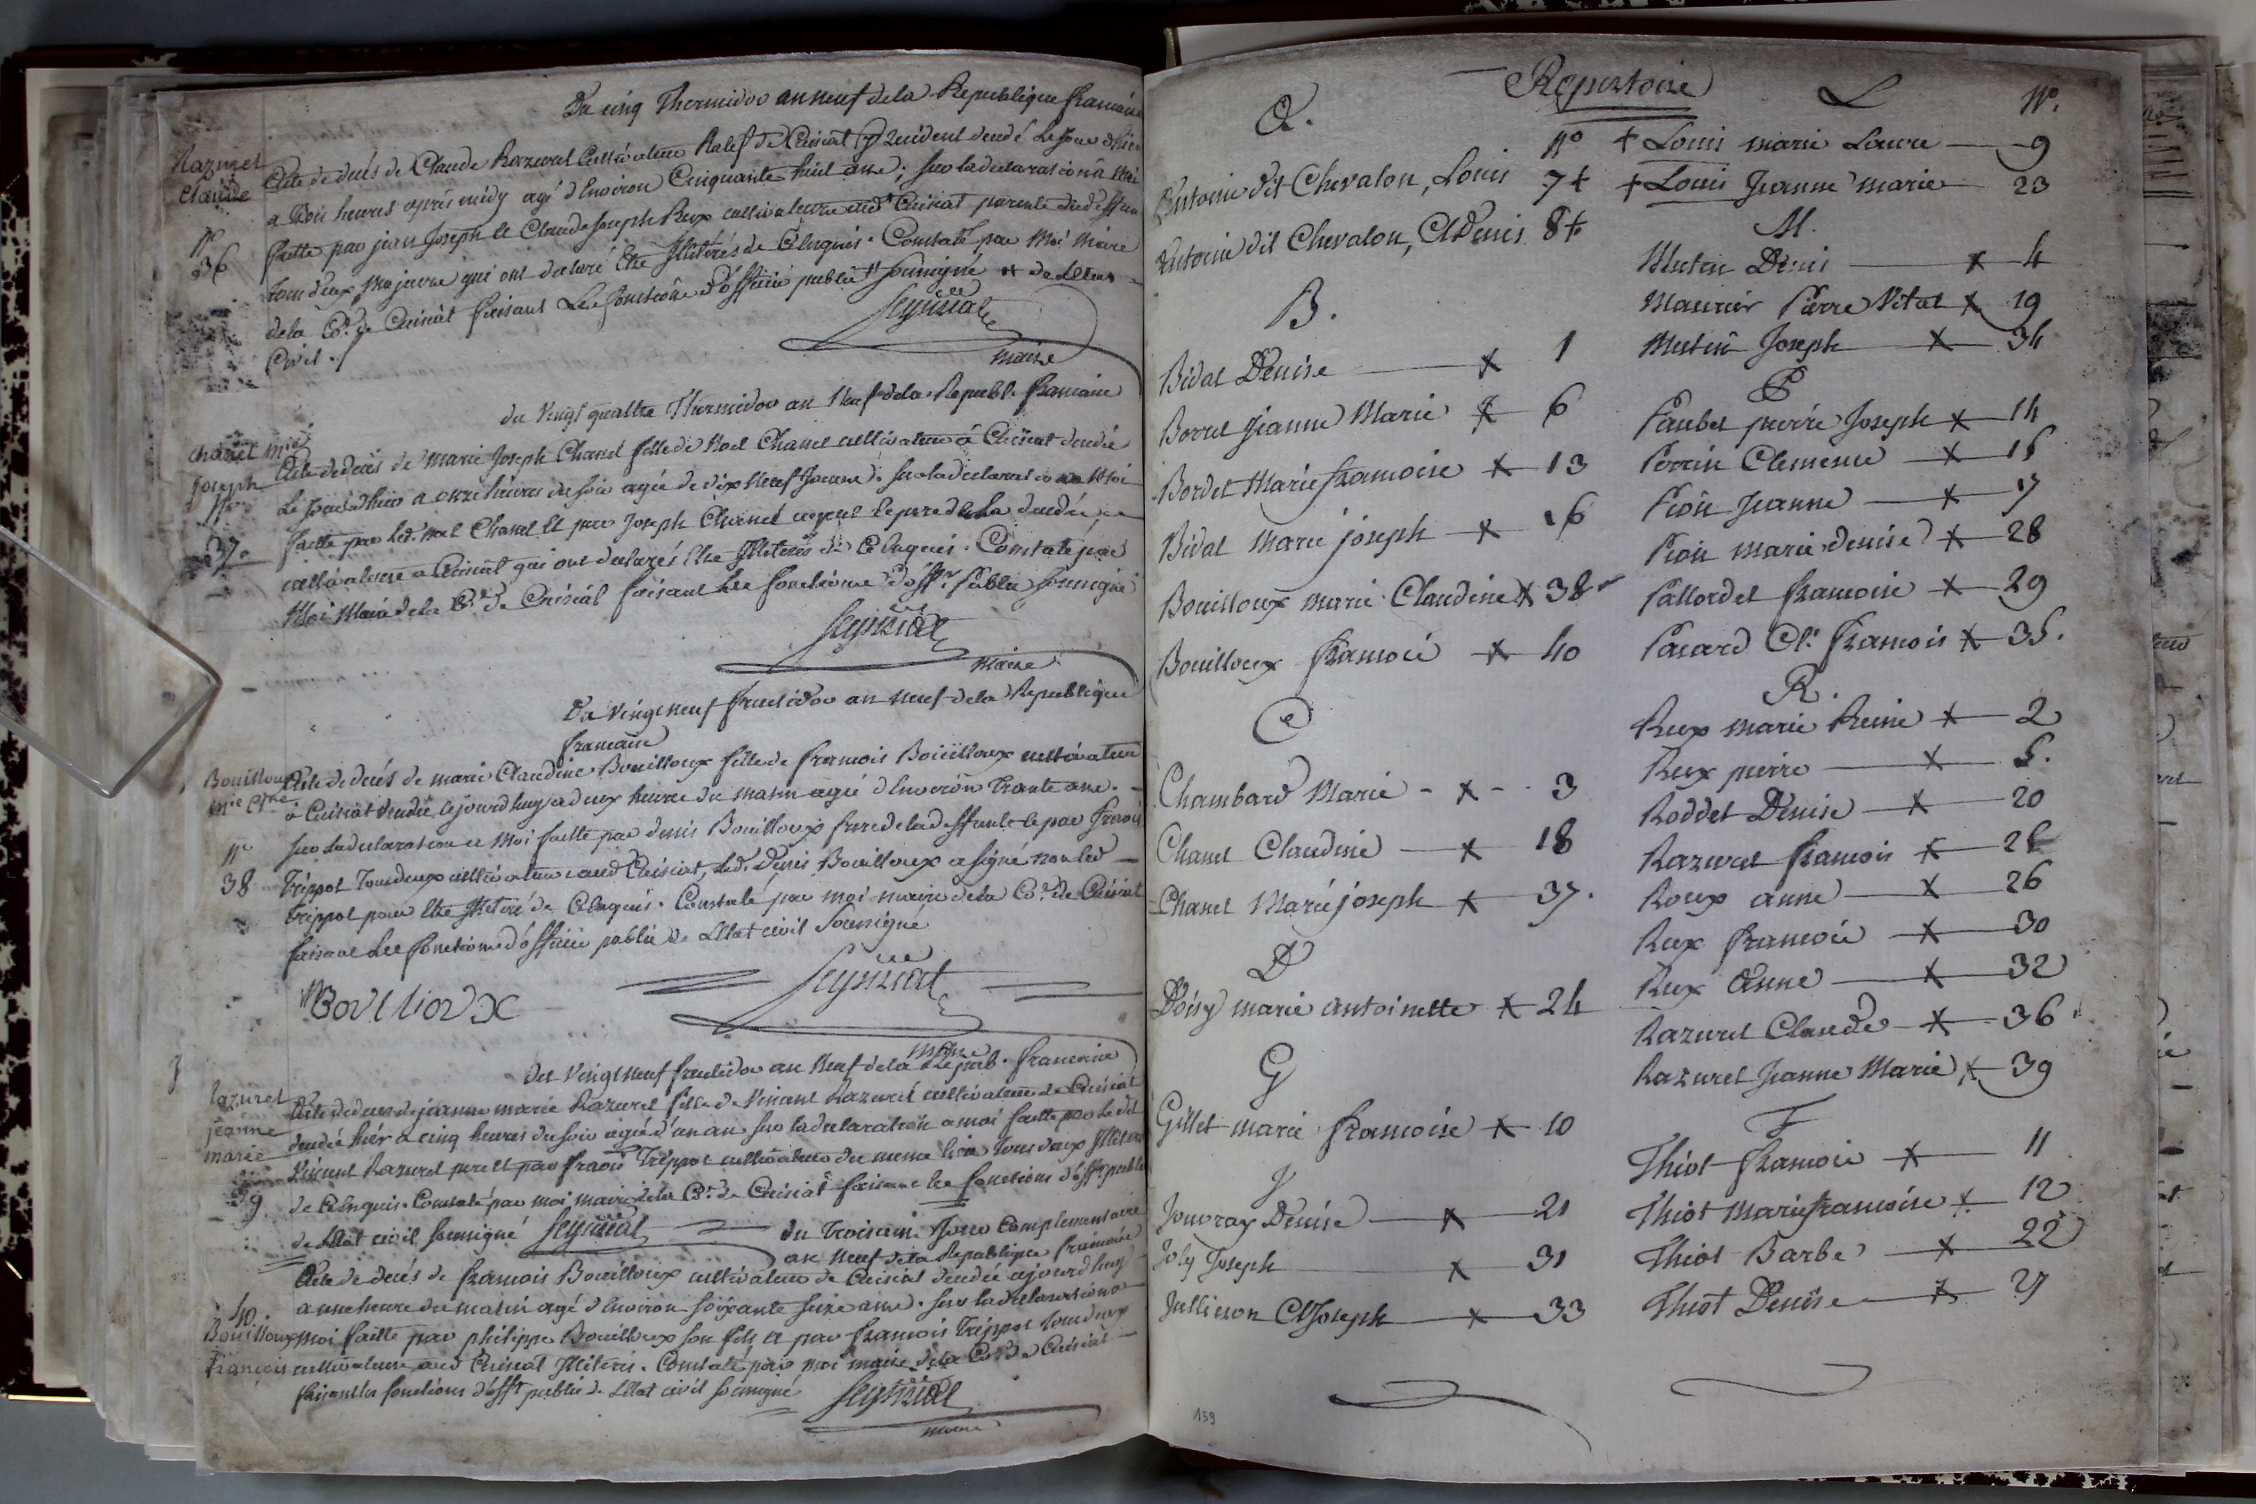 Du cinq Thermidor an neuf de la Republique francaise
Razurel
Claude
N°
36
Acte de decés de Claude Razurel Cultivateur Natif de Cuisiat y Residant decedé Le Jour d'hier
a trois heures après midy agé d'Environ Cinquante huit ans; sur la declaration à moi
faitte par jean Joseph et Claude Joseph Rux cultivateurs aud Cuisiat parents du deffunt
tous deux Majeurs qui ont declaré Etre Illiterés de ce Enquis. Constaté par Moi Maire
de la Cne de Cuisiat faisant Les fonctions d'officier public soussigné de Letat
Civil./.
Seyssiat
maire
du vingt quattre Thermidor an Neuf de la Republ. francaise
Chanel Mie
Joseph
N°
37.
Acte de decés de Marie Joseph Chanel fille de Noel Chanel cultivateur à Cuisiat decedée
Le Jour d'hier a onze heures du soir agée de dix Neuf Jours. sur la declaration à Moi
faitte par led. Noel Chanel et par Joseph Chanel ayeul le pere de la decedée,
cultivateurs a Cuisiat qui ont declarés Etre Illiterés de ce Enquis. Constaté par
Moi Maire de la Cne de Cuisiat faisant Les fonctions d'offr. Public soussigné
Seyssiat
Maire
Du vingt neuf fructidor an neuf de la Republique
francaise
Bouilloux
Mie Cne
N°
38
Acte de decés de marie Claudine Bouilloux fille de francois Bouilloux cultivateur
à Cuisiat decedée cejourdhuy a deux heures du matin agée d'Environ trante ans.
sur la declaration a Moi faitte par denis Bouilloux frere de la deffunte et par francois
Trippoz Tous deux cultivateurs aud Cuisiat, led. Denis Bouilloux a signé non led
trippoz pour Etre Illiteré de ce Enquis. Constaté par moi maire de la Cne de Cuisiat
faisant Les fonctions d'officier public de Letat civil Soussigné
BovLLiovX
Seyssiat
maire
du vingt neuf fructidor an Neuf de la Repub. francaise
Razurel
jeanne
marie
39
Acte de deces de jeanne marie Razurel fille de Vincent Razurel cultivateur de Cuisiat
decedée hier a cinq heures du soir agée d'un an sur la declaration a moi faitte par le dit
Vincent Razurel pere et par francois Trippoz cultivateur du meme lieu tous deux Illiteres
de ce Enquis. Constaté par moi maire de la Cne de Cuisiat faisant les fonctions d'offr public
de Letat civil soussigné Seyssiat
du Troisieme Jour Complementaire
an Neuf de la Republique francaise
40.
Bouilloux
francois
Acte de decés de francois Bouilloux cultivateur de Cuisiat decedée cejourdhuy
a une heure du matin agé d'Environ soixante seize ans. sur la declaration a
moi faitte par philippe Bouilloux son fils et par francois Trippoz tous deux
cultivateurs aud Cuisiat Illiterés. Constaté par moi maire de la Cne de Cuisiat
faisant les fonctions d'offr public de Letat civil soussigné Seyssiat
maire
Repertoire
A.
N°
Antoine dit Chevalon, Louis 7+
Antoine dit Chevalon, Cl Denis 8+
B.
Bidal Denise x 1
Borrel Jeanne Marie x 6
Bordet Marie francoise x 13
Bidal Marie joseph x 16
Bouilloux marie Claudine x 38
Bouilloux francois x 40
C
Chambard Marie - x - 3
Chanel Claudine x 18
Chanel Marie joseph x 37.
D
Doisy marie antoinette x 24
G
Gillet marie francoise x 10
J
Jouvray Denise x 21
Joly Joseph x 31
Jullieron Cl Joseph x 33
159
L
N°.
+ Louis marie Laure 9
+ Louis Jeanne marie 23
M.
Mutin Denis x 4
Maurier Pierre Vital x 19
Mutin Joseph x 34
P
Paubel pierre Joseph x 14
Perrin Clemence x 15
Pion Jeanne x 17
Pion marie denise x 28
Pallordet francoise x 29
Pacard Cl. francois x 35.
R.
Rux marie Reine x 2
Rux pierre x 5.
Roddet Denise x 20
Razurel francois x 25
Roux anne x 26
Rux francois x 30
Rux Anne x 32
Razurel Claude x 36
Razurel Jeanne Marie x 39
T
Thiot francois x 11
Thiot Marie francoise x 12
Thiot Barbe x 22
Thiot Denise x 27